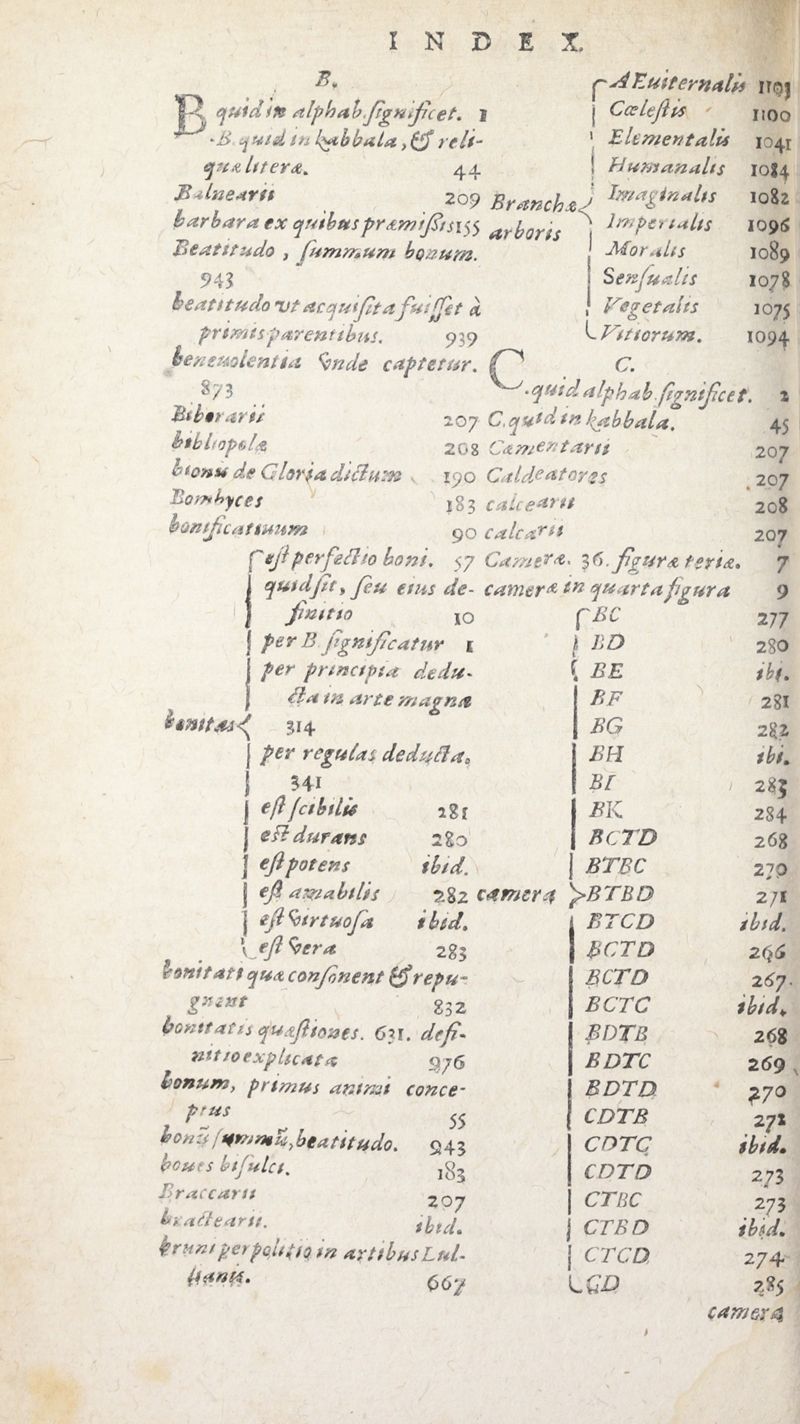 INDEX.
B.
B quid in alphab. significet. 1
B. quid in kabbala, & reli-
quæ literæ. 44
Balnearii 209
barbara ex quibus præmissis 155
Beatitudo, summum bonum.
943
beatitudo vt acquisita fuisset à
primis parentibus. 939
beneuolentia vnde captetur.
873
Biberarii 207
bibliopolæ 208
bionus de Gloria dictum 190
Bombyces 183
bonificatiuum 90
bonitas
est perfectio boni. 57
quid sit, seu eius de-
finitio 10
per B significatur 1
per principia dedu-
cta in arte magna
314
per regulas deducta.
341
est scibilis 281
est durans 280
est potens ibid.
est amabilis 282
est virtuosa ibid.
est vera 283
bonitati quæ consonent & repu-
gnent 832
bonitatis quæstiones. 631. defi-
nitio explicata 976
bonum, primus animi conce-
ptus 55
bonū summū, beatitudo. 943
boues bisulci. 183
Braccarii 207
bractearii. ibid.
bruni perpolitio in artibus Lul-
lianis. 667
Branchæ
arboris
AEuiternalis 1103
Cœlestis 1100
Elementalis 1041
Humanalis 1084
Imaginalis 1082
Imperialis 1096
Moralis 1089
Sensualis 1078
Vegetalis 1075
Vitiorum. 1094
C.
C. quid alphab. significet. 2
C. quid in kabbala. 45
Cæmentarii 207
Caldeatores 207
calcearii 208
calcarii 207
Cameræ. 36. figuræ teriæ. 7
cameræ in quarta figura 9
camera
BC 277
BD 280
BE ibi.
BF 281
BG 282
BH ibi.
BI 283
BK 284
BCTD 268
BTBC 270
BTBD 271
BTCD ibid.
BCTD 266
BCTD 267.
BCTC ibid.
BDTB 268
BDTC 269
BDTD 270
CDTB 271
CDTC ibid.
CDTD 273
CTBC 273
CTBD ibid.
CTCD 274
CD 285
camera